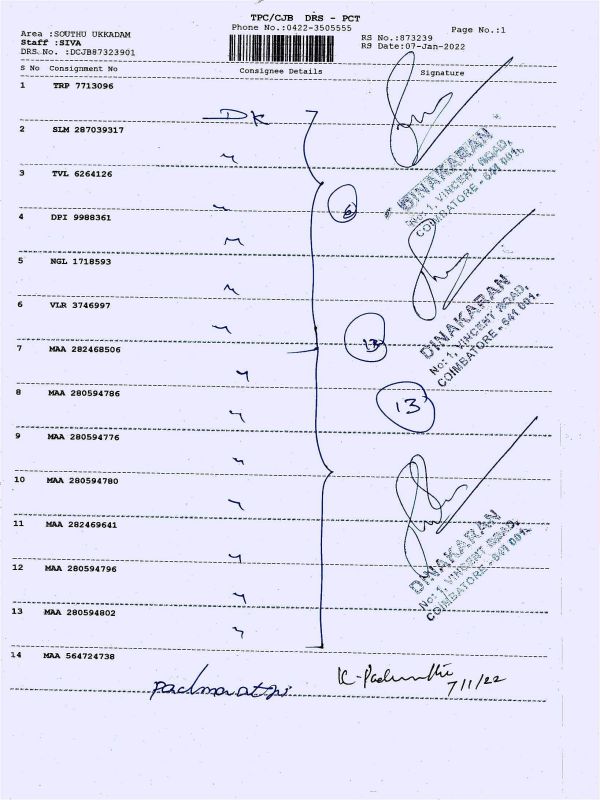 TPC/CJB DRS - PCT
Phone No.:0422-3505555
Page No.:1
Area :SOUTHU UKKADAM
Staff :SIVA
DRS. No. :DCJB87323901
RS No.:873239
RS Date:07-Jan-2022
S No Consignment No Consignee Details Signature
1 TRP 7713096
DK
2 SLM 287039317
3 TVL 6264126
DINAKARAN
No: 1, VINCENT ROAD,
COIMBATORE - 641 001.
6
4 DPI 9988361
5 NGL 1718593
6 VLR 3746997
DINAKARAN
No: 1, VINCENT ROAD,
COIMBATORE - 641 001.
7 MAA 282468506
13
8 MAA 280594786
13
9 MAA 280594776
10 MAA 280594780
11 MAA 282469641
DINAKARAN
No: 1, VINCENT ROAD,
COIMBATORE - 641 001.
12 MAA 280594796
13 MAA 280594802
14 MAA 564724738
padmavathi
K-Padmavathi
7/1/22